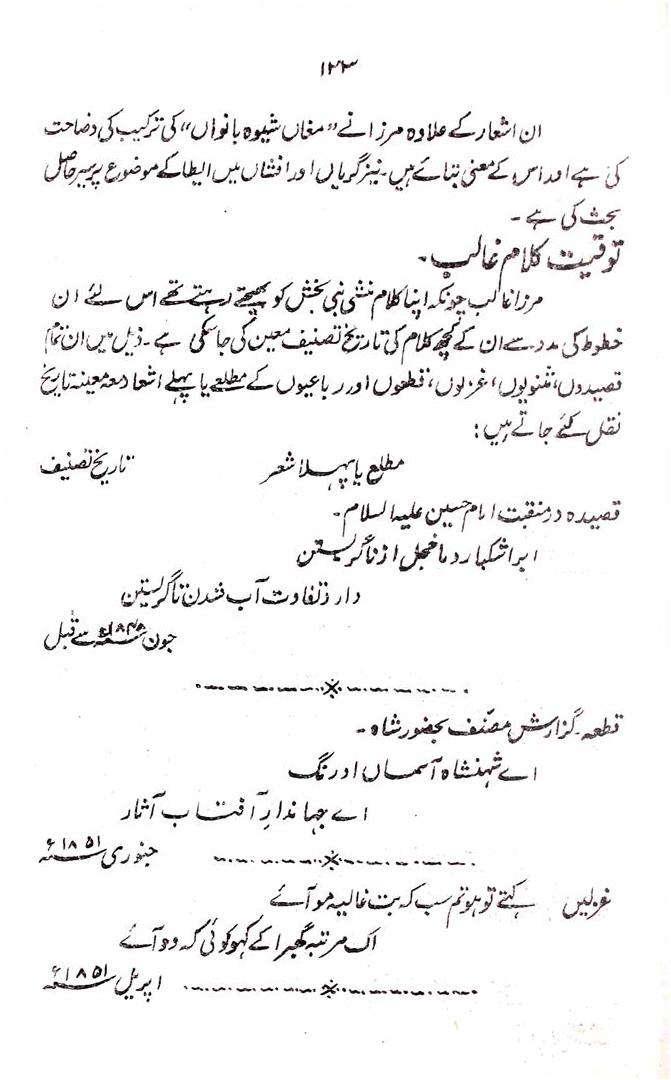 ۱۲۳
ان اشعار کے علاوہ مرزا نے "مغاں شیوہ بانواں" کی ترکیب کی وضاحت
کی ہے اور اس کے معنی بتائے ہیں۔ نیز گریاں اور افشاں میں ایطا کے موضوع پر سیر حاصل
بحث کی ہے۔
توقیت کلام غالب۔
مرزا غالب چونکہ اپنا کلام منشی نبی بخش کو بھیجتے رہتے تھے اس لئے ان
خطوط کی مدد سے ان کے کچھ کلام کی تاریخ تصنیف معین کی جا سکی ہے۔ ذیل میں ان تمام
قصیدوں، مثنویوں، غزلوں، قطعوں اور رباعیوں کے مطلعے یا پہلے اشعار معہ معینہ تاریخ
نقل کئے جاتے ہیں:
مطلع یا پہلا شعر تاریخ تصنیف
قصیدہ در منقبت امام حسین علیہ السلام۔
ابر اشکبار و ما خجل از ناگریستن
دارد تفاوت آب شدن تا گریستن
جون ۱۸۴۸ء سے قبل
قطعہ۔ گزارش مصنف بحضور شاہ۔
اے شہنشاہ آسماں اورنگ
اے جہاندارِ آفتاب آثار
جنوری ۱۸۵۱ء
غزلیں کہتے تو ہو تم سب کہ بت غالیہ مو آئے
اک مرتبہ گھبرا کے کہو کوئی کہ وو آئے
اپریل ۱۸۵۱ء